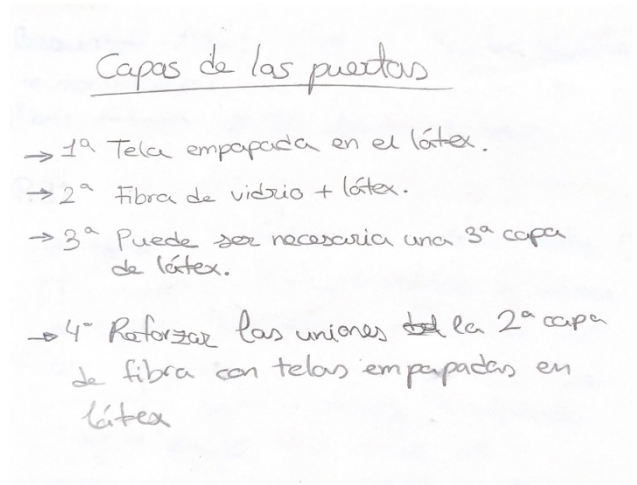 Capas de las puertas
→ 1ª Tela empapada en el látex.
→ 2ª Fibra de vidrio + látex.
→ 3ª Puede ser necesaria una 3ª capa
de látex.
→ 4ª Reforzar las uniones la 2ª capa
de fibra con telas empapadas en
látex